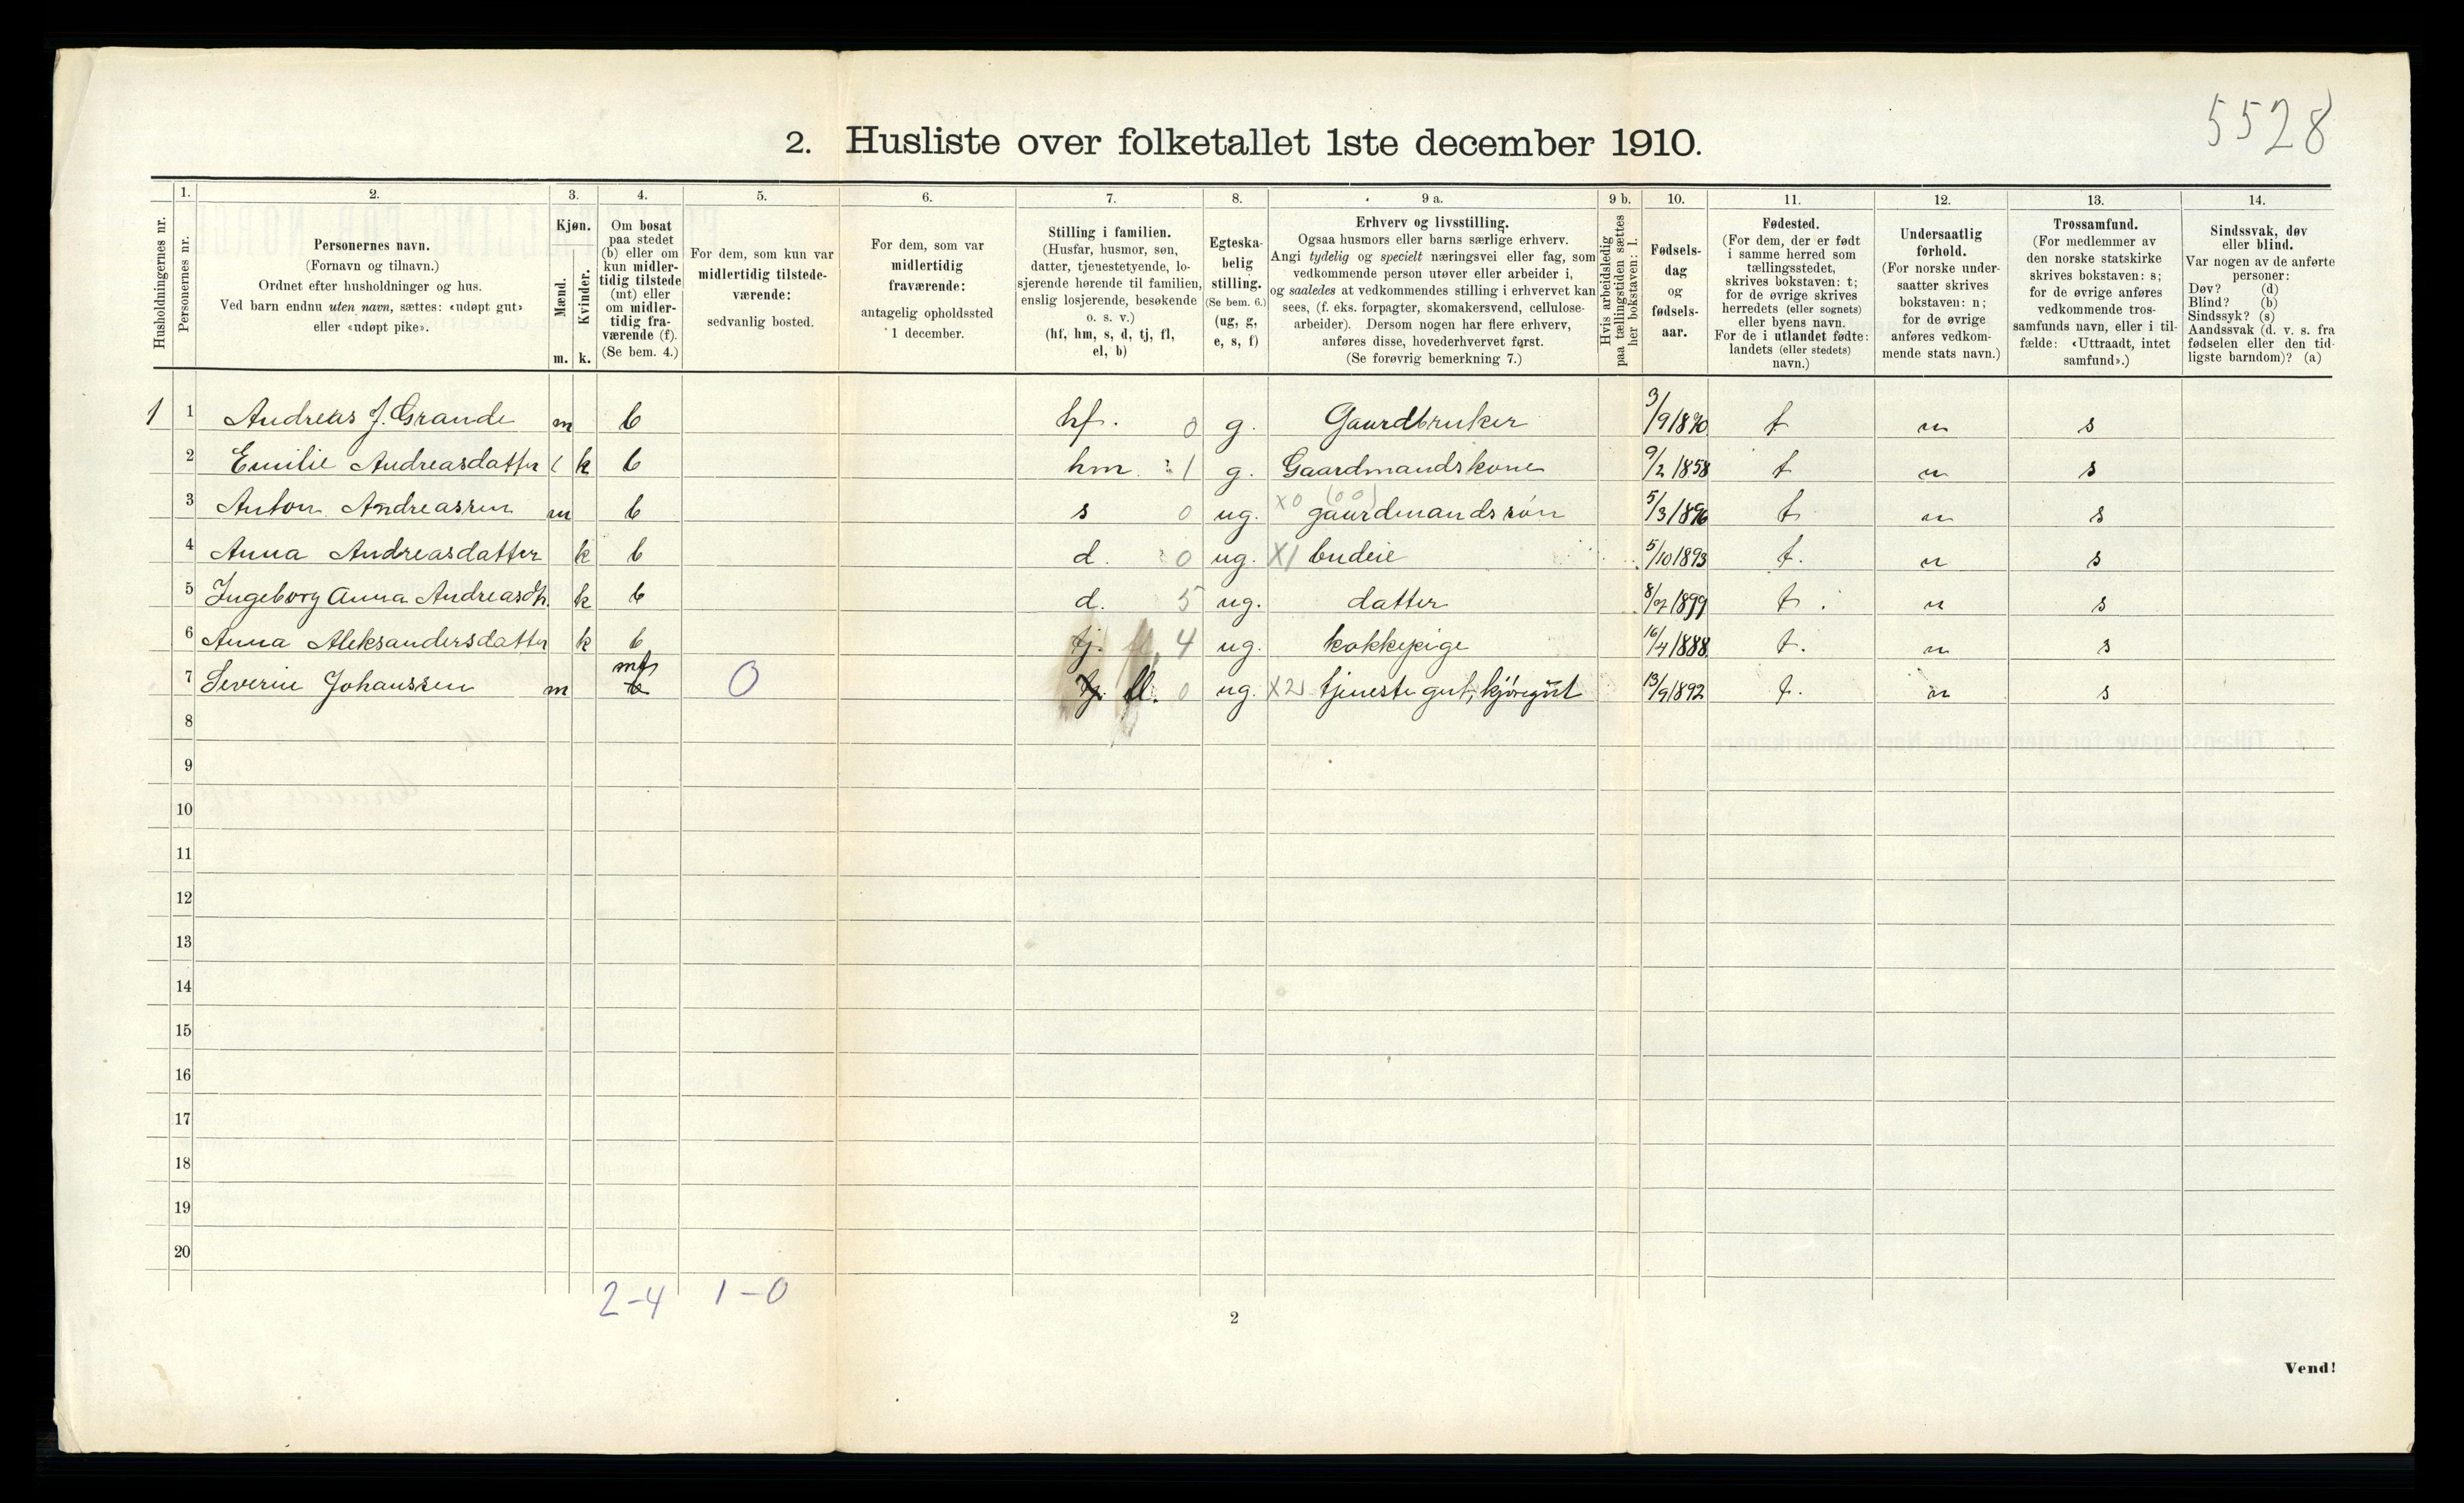 5528
2. Husliste over folketallet 1ste december 1910.
Husholdningernes nr.
1.
Personernes nr.
2.
Personernes navn.
(Fornavn og tilnavn.)
Ordnet efter husholdninger og hus.
Ved barn endnu uten navn, sættes: «udøpt gut»
eller «udøpt pike».
3.
Kjøn.
Mænd.
Kvinder.
m. k.
4.
Om bosat
paa stedet
(b) eller om
kun midler-
tidig tilstede
(mt) eller
om midler-
tidig fra-
værende (f).
(Se bem. 4.)
5.
For dem, som kun var
midlertidig tilstede-
værende:
sedvanlig bosted.
6.
For dem, som var
midlertidig
fraværende:
antagelig opholdssted
1 december.
7.
Stilling i familien.
(Husfar, husmor, søn,
datter, tjenestetyende, lo-
sjerende hørende til familien,
enslig losjerende, besøkende
o. s. v.)
(hf, hm, s, d, tj, fl,
el, b)
8.
Egteska-
belig
stilling.
(Se bem. 6.)
(ug, g,
e, s, f)
9 a.
Erhverv og livsstilling.
Ogsaa husmors eller barns særlige erhverv.
Angi tydelig og specielt næringsvei eller fag, som
vedkommende person utøver eller arbeider i,
og saaledes at vedkommendes stilling i erhvervet kan
sees, (f. eks. forpagter, skomakersvend, cellulose-
arbeider). Dersom nogen har flere erhverv,
anføres disse, hovederhvervet først.
(Se forøvrig bemerkning 7.)
9 b.
Hvis arbeidsledig
paa tællingstiden sættes
her bokstaven: l.
10.
Fødsels-
dag
og
fødsels-
aar.
11.
Fødested.
(For dem, der er født
i samme herred som
tællingsstedet,
skrives bokstaven: t;
for de øvrige skrives
herredets (eller sognets)
eller byens navn.
For de i utlandet fødte:
landets (eller stedets)
navn.)
12.
Undersaatlig
forhold.
(For norske under-
saatter skrives
bokstaven: n;
for de øvrige
anføres vedkom-
mende stats navn.)
13.
Trossamfund.
(For medlemmer av
den norske statskirke
skrives bokstaven: s;
for de øvrige anføres
vedkommende tros-
samfunds navn, eller i til-
fælde: «Uttraadt, intet
samfund».)
14.
Sindssvak, døv
eller blind.
Var nogen av de anførte
personer:
Døv? (d)
Blind? (b)
Sindssyk? (s)
Aandssvak (d. v. s. fra
fødselen eller den tid-
ligste barndom)? (a)
1 1 Andreas J. Grande m b hf. 0 g. Gaardbruker 3/9 18 t n s
2 Emilie Andreasdatter k b hm. 1 g. Gaardmandskone 9/2 1858 t n s
3 Anton Andreassen m b s 0 ug. X0 (00) gaardmandssön 5/3 1896 t n s
4 Anna Andreasdatter k b d. 0 ug. X1 budeie 5/10 1893 t. n s
5 Ingeborg Anna Andreasdt. k b d. 5 ug. datter 8/7 1899 t. n s
6 Anna Aleksandersdatter k b tj. fl. 4 ug. kokkepige 16/4 1888 t. n s
7 Severin Johanssen m mt b 0 tj. fl. 0 ug. X2 tjenestegut, kjöregut 13/9 1892 t. n s
8
9
10
11
12
13
14
15
16
17
18
19
20
2-4 1-0
2
Vend!